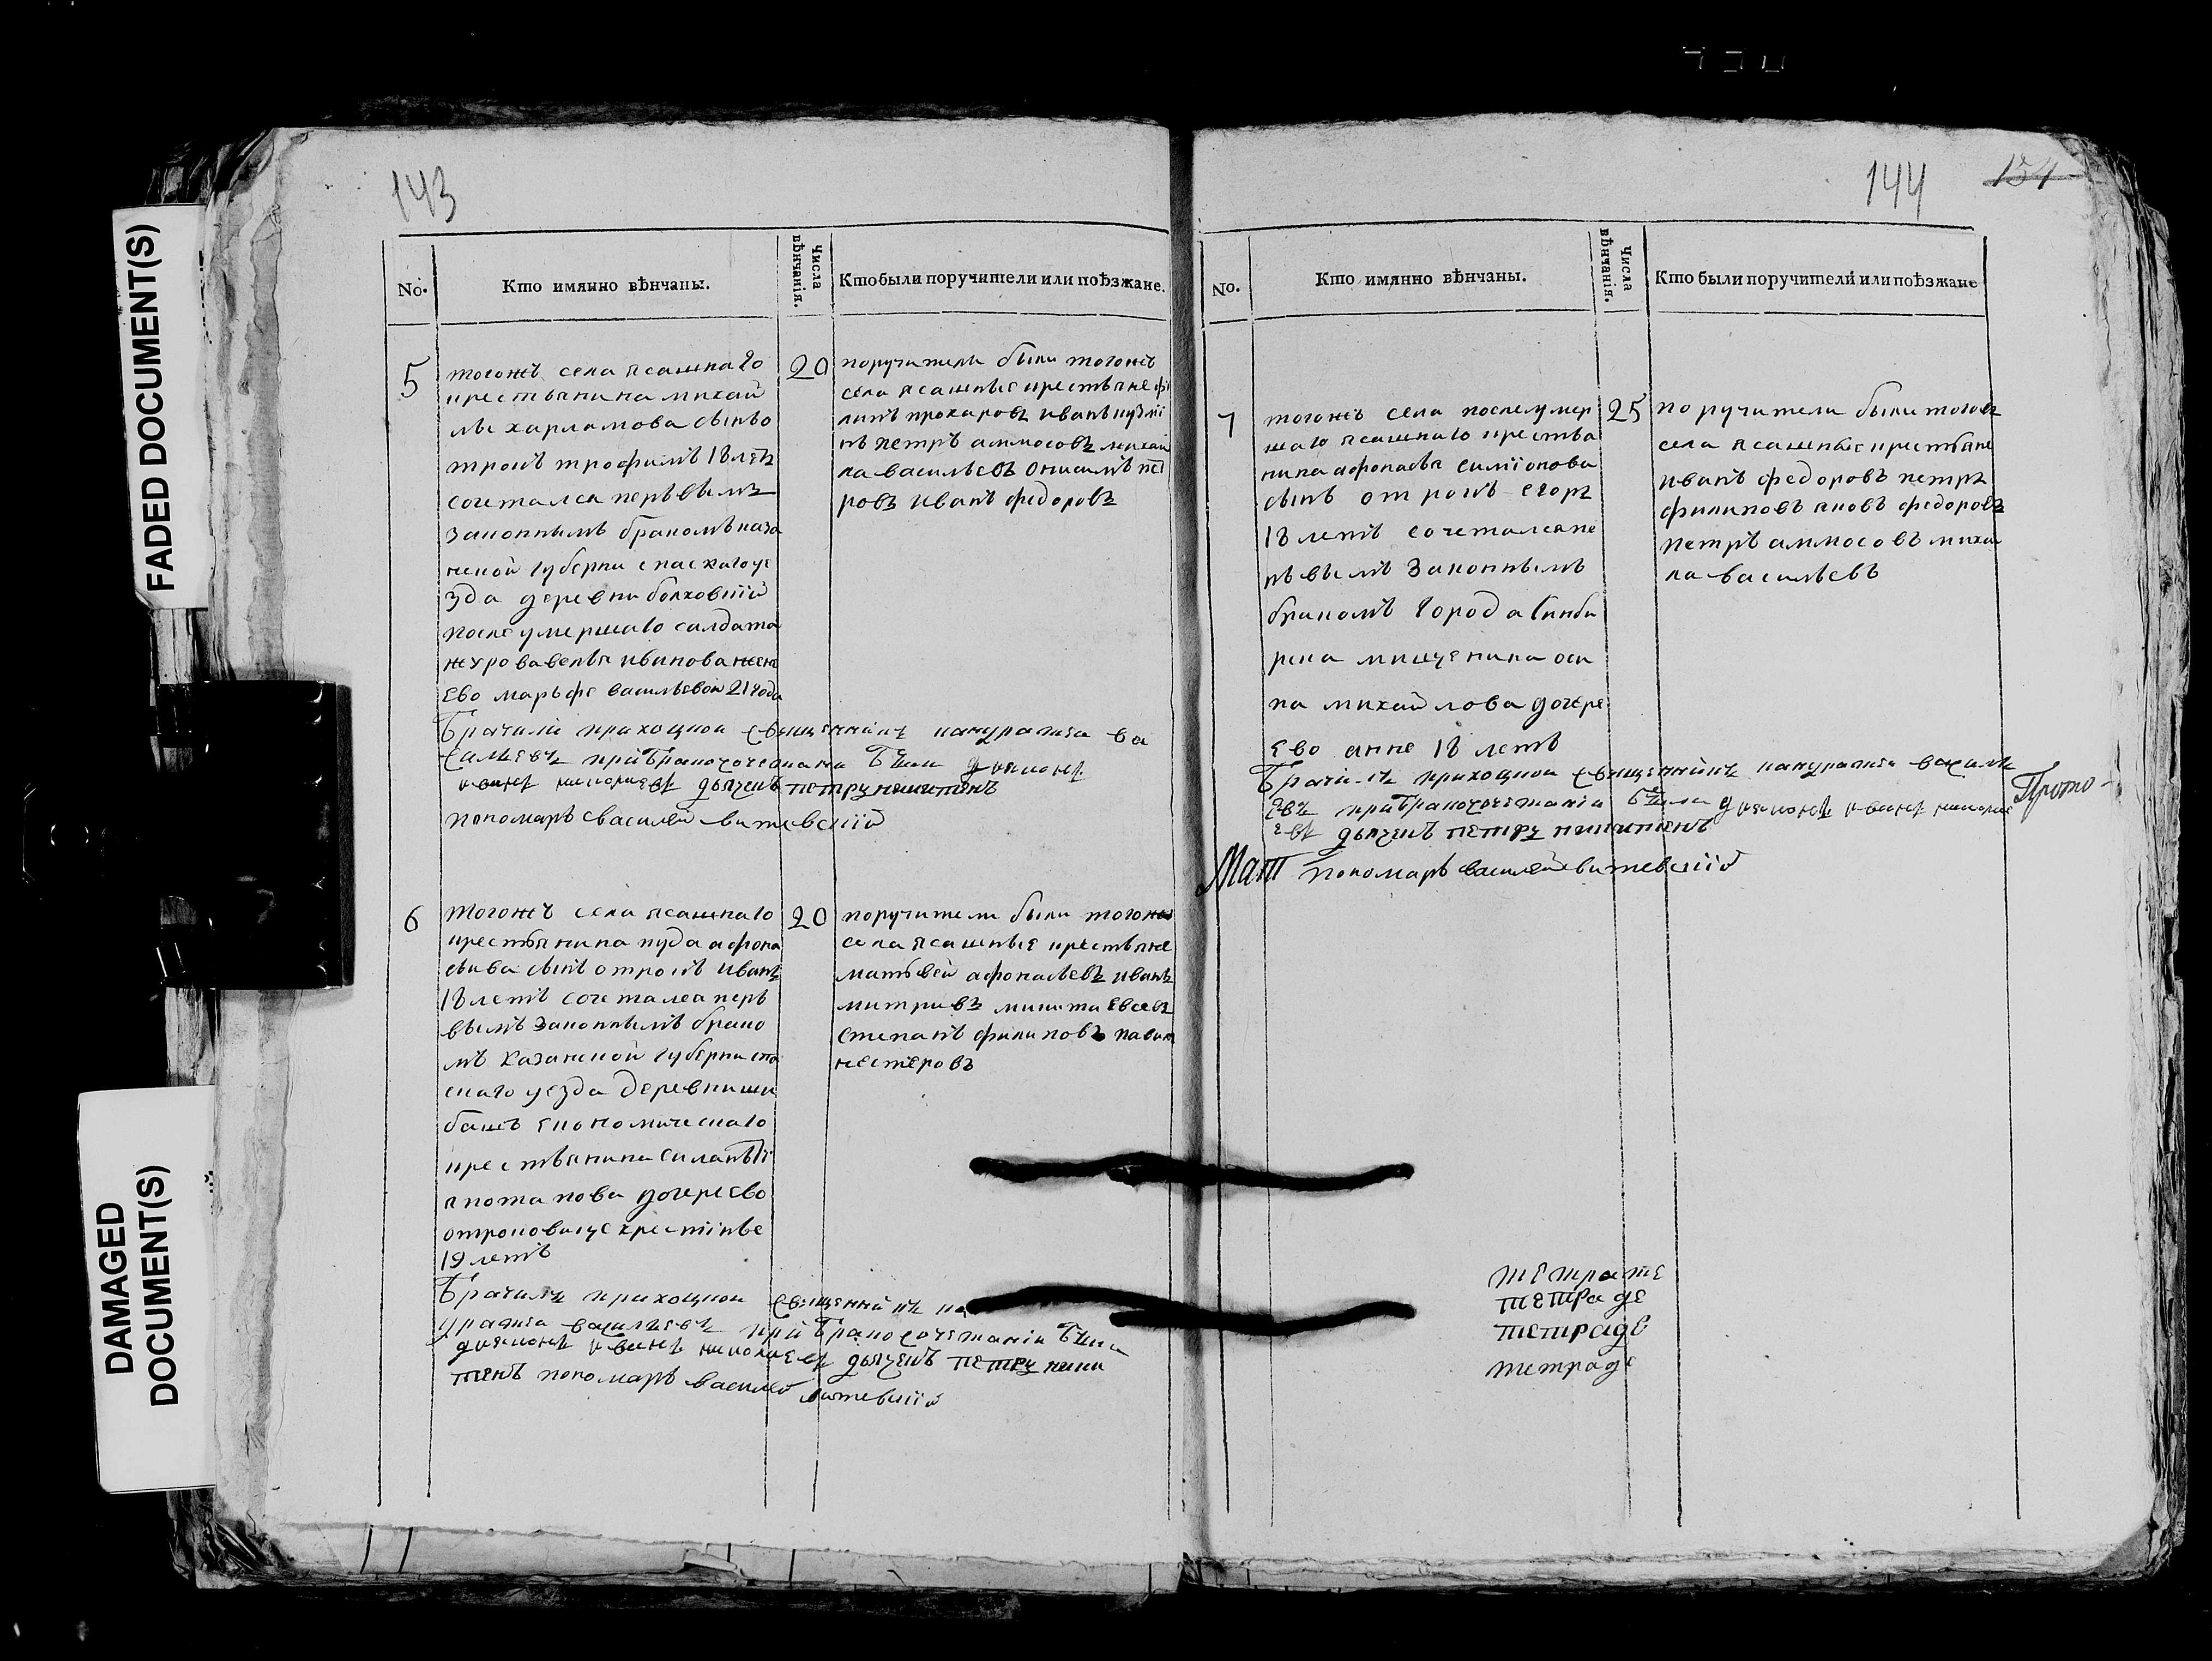 FADED DOCUMENT(S)
DAMAGED
DOCUMENT(S)
143
No.
Кто имянно вѣнчаны.
Числа
вѣнчанія.
Кто были поручители или поѣзжане.
5
тогожъ села ясашнаго
крестьянина михай
лы харламова сынъ о
трокъ трофимъ 18 летъ
сочетался первымъ
законнымъ бракомъ каза
нской губерни спаскаго уе
зда деревни болховкий
после умершаго салдата
ивинова жен
ево марьфе васильевой 21 года
20
поручители были тогожъ
села ясашные крестьяне фи
липъ прохаровъ иванъ кузми
нъ петръ аммосовъ михай
ла васильевъ онисимъ пет
ровъ иванъ федоровъ
Брачилъ приходцкой священникъ ва
сильевъ при Бракосочетании Были дияконъ
иванъ николаевъ дьячекъ петръ никитинъ
пономарь василей витевский
6
тогожъ села ясашнаго
крестьянина нуда афона
сьива сынъ отрокъ иванъ
18 летъ сочетался перь
вымъ законнымъ брако
мъ казанской губерни спа
скаго уезда деревни ши
башъ економическаго
крестьянина силантьи
я потапова дочере ево
отроковице хрестинье
19 летъ
20
поручители были тогожъ
села ясашные крестьяне
матьвей афонасьевъ иванъ
митривъ микита евсевъ
степанъ филиповъ павил
нестеровъ
Брачилъ приходцкой священникъ
васильевъ при Бракосочетании Были
дияконъ иванъ николаевъ дьячекъ петръ ники
тинъ пономарь василей витевский
144
154
No.
Кто имянно вѣнчаны.
Числа
вѣнчанія.
Кто были поручители или поѣзжане
7
тогожъ села после умер
шаго ясашнаго крестья
нина афонасья симионова
сынъ отрокъ егоръ
18 летъ сочетался пе
рьвымъ законнымъ
бракомъ города Синби
рска мищенина оси
па михайлова дочере
ево анне 18 летъ
25
поручители были тогожъ
села ясашные крестьяне
иванъ федоровъ петръ
филиповъ яковъ федоровъ
петръ аммосовъ михай
ла васильевъ
Брачилъ приходцкой священникъ василь
евъ при Бракосочетании Были дияконъ иванъ никола
евъ дьячекъ петръ никитинъ
пономарь василей витевский
Прото-
Мат
тетрате
тетраде
тетраде
тетраде